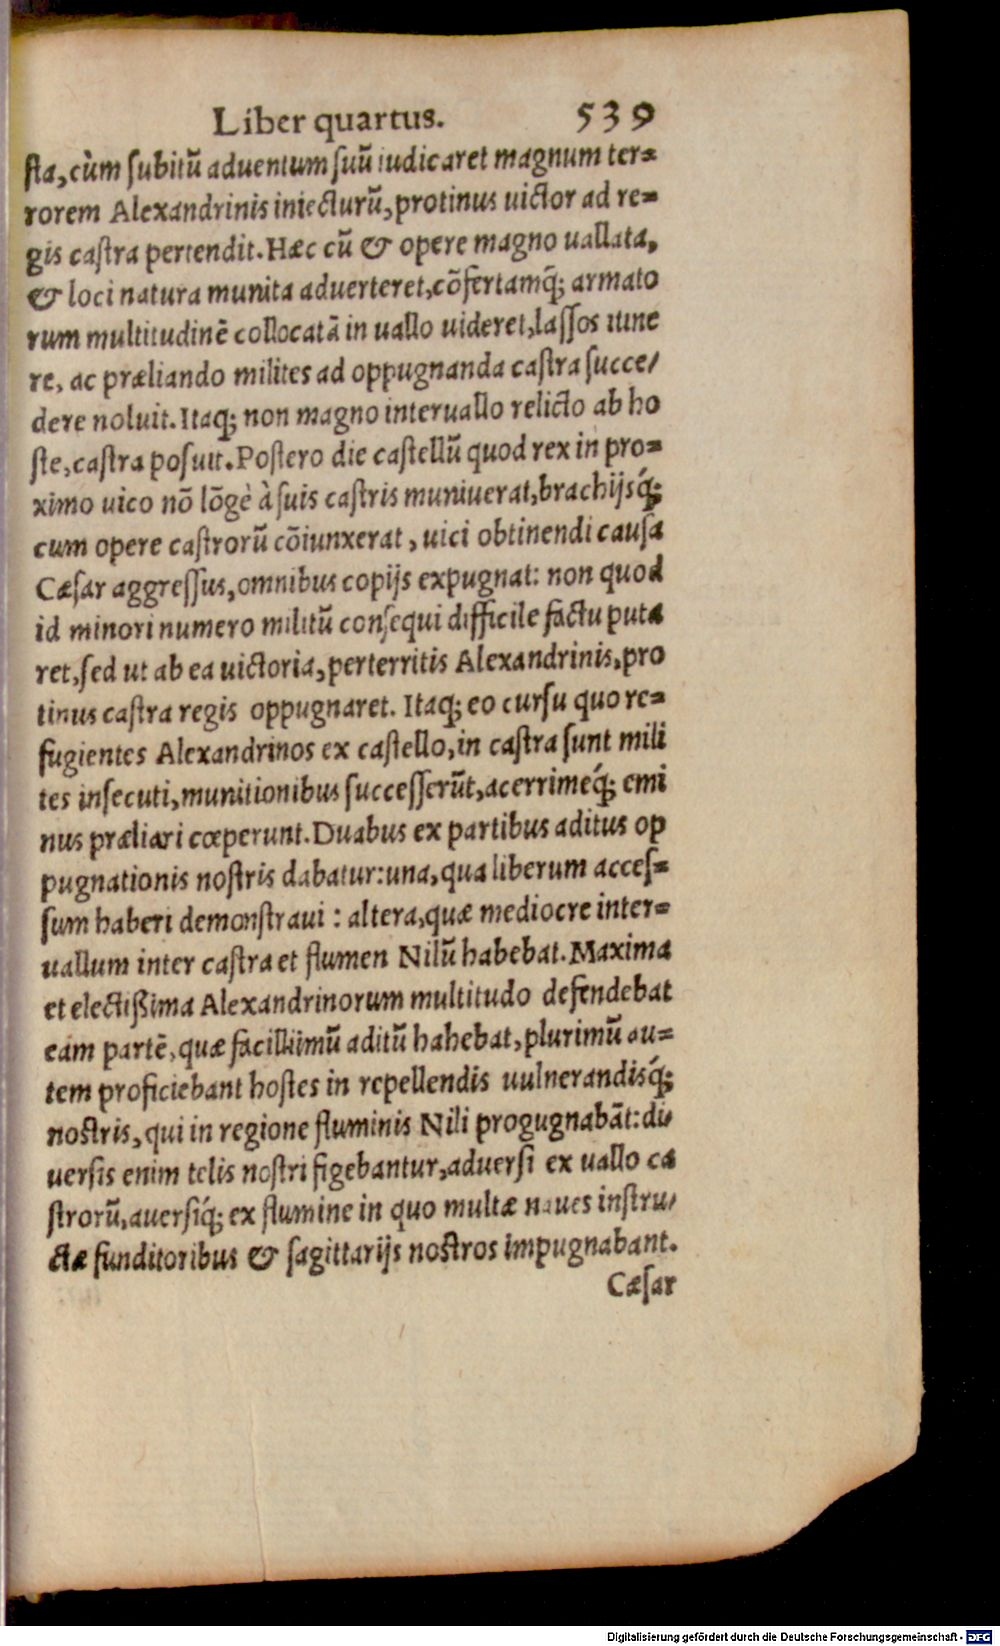 Liber quartus. 539
ſta, cùm ſubitū aduentum ſuū iudicaret magnum ter=
rorem Alexandrinis iniecturū, protinus uictor ad re=
gis caſtra pertendit. Hæc cū & opere magno uallata,
& loci natura munita aduerteret, cōfertamq̃; armato
rum multitudinē collocatā in uallo uideret, laſſos itine
re, ac præliando milites ad oppugnanda caſtra ſucce/
dere noluit. Itaq; non magno interuallo relicto ab ho
ſte, caſtra poſuit. Poſtero die caſtellū quod rex in pro=
ximo uico nō lōgè à ſuis caſtris muniuerat, brachijsq́;
cum opere caſtrorū cōiunxerat, uici obtinendi cauſa
Cæſar aggreſſus, omnibus copijs expugnat: non quod
id minori numero militū conſequi difficile factu puta
ret, ſed ut ab ea uictoria, perterritis Alexandrinis, pro
tinus caſtra regis oppugnaret. Itaq; eo curſu quo re=
fugientes Alexandrinos ex caſtello, in caſtra ſunt mili
tes inſecuti, munitionibus ſucceſſerūt, acerrimeq́; emi
nus præliari cœperunt. Duabus ex partibus aditus op
pugnationis noſtris dabatur: una, qua liberum acceſ=
ſum haberi demonſtraui : altera, quæ mediocre inter=
uallum inter caſtra et flumen Nilū habebat. Maxima
et electißima Alexandrinorum multitudo defendebat
eam partē, quæ facillimū aditū hahebat, plurimū au=
tem proficiebant hoſtes in repellendis uulnerandisq́;
noſtris, qui in regione fluminis Nili progugnabāt: di/
uerſis enim telis noſtri figebantur, aduerſi ex uallo ca
ſtrorū, auerſiq́; ex flumine in quo multæ naues inſtru/
ctæ funditoribus & ſagittarijs noſtros impugnabant.
Cæſar
Digitalisierung gefördert durch die Deutsche Forschungsgemeinschaft - DFG